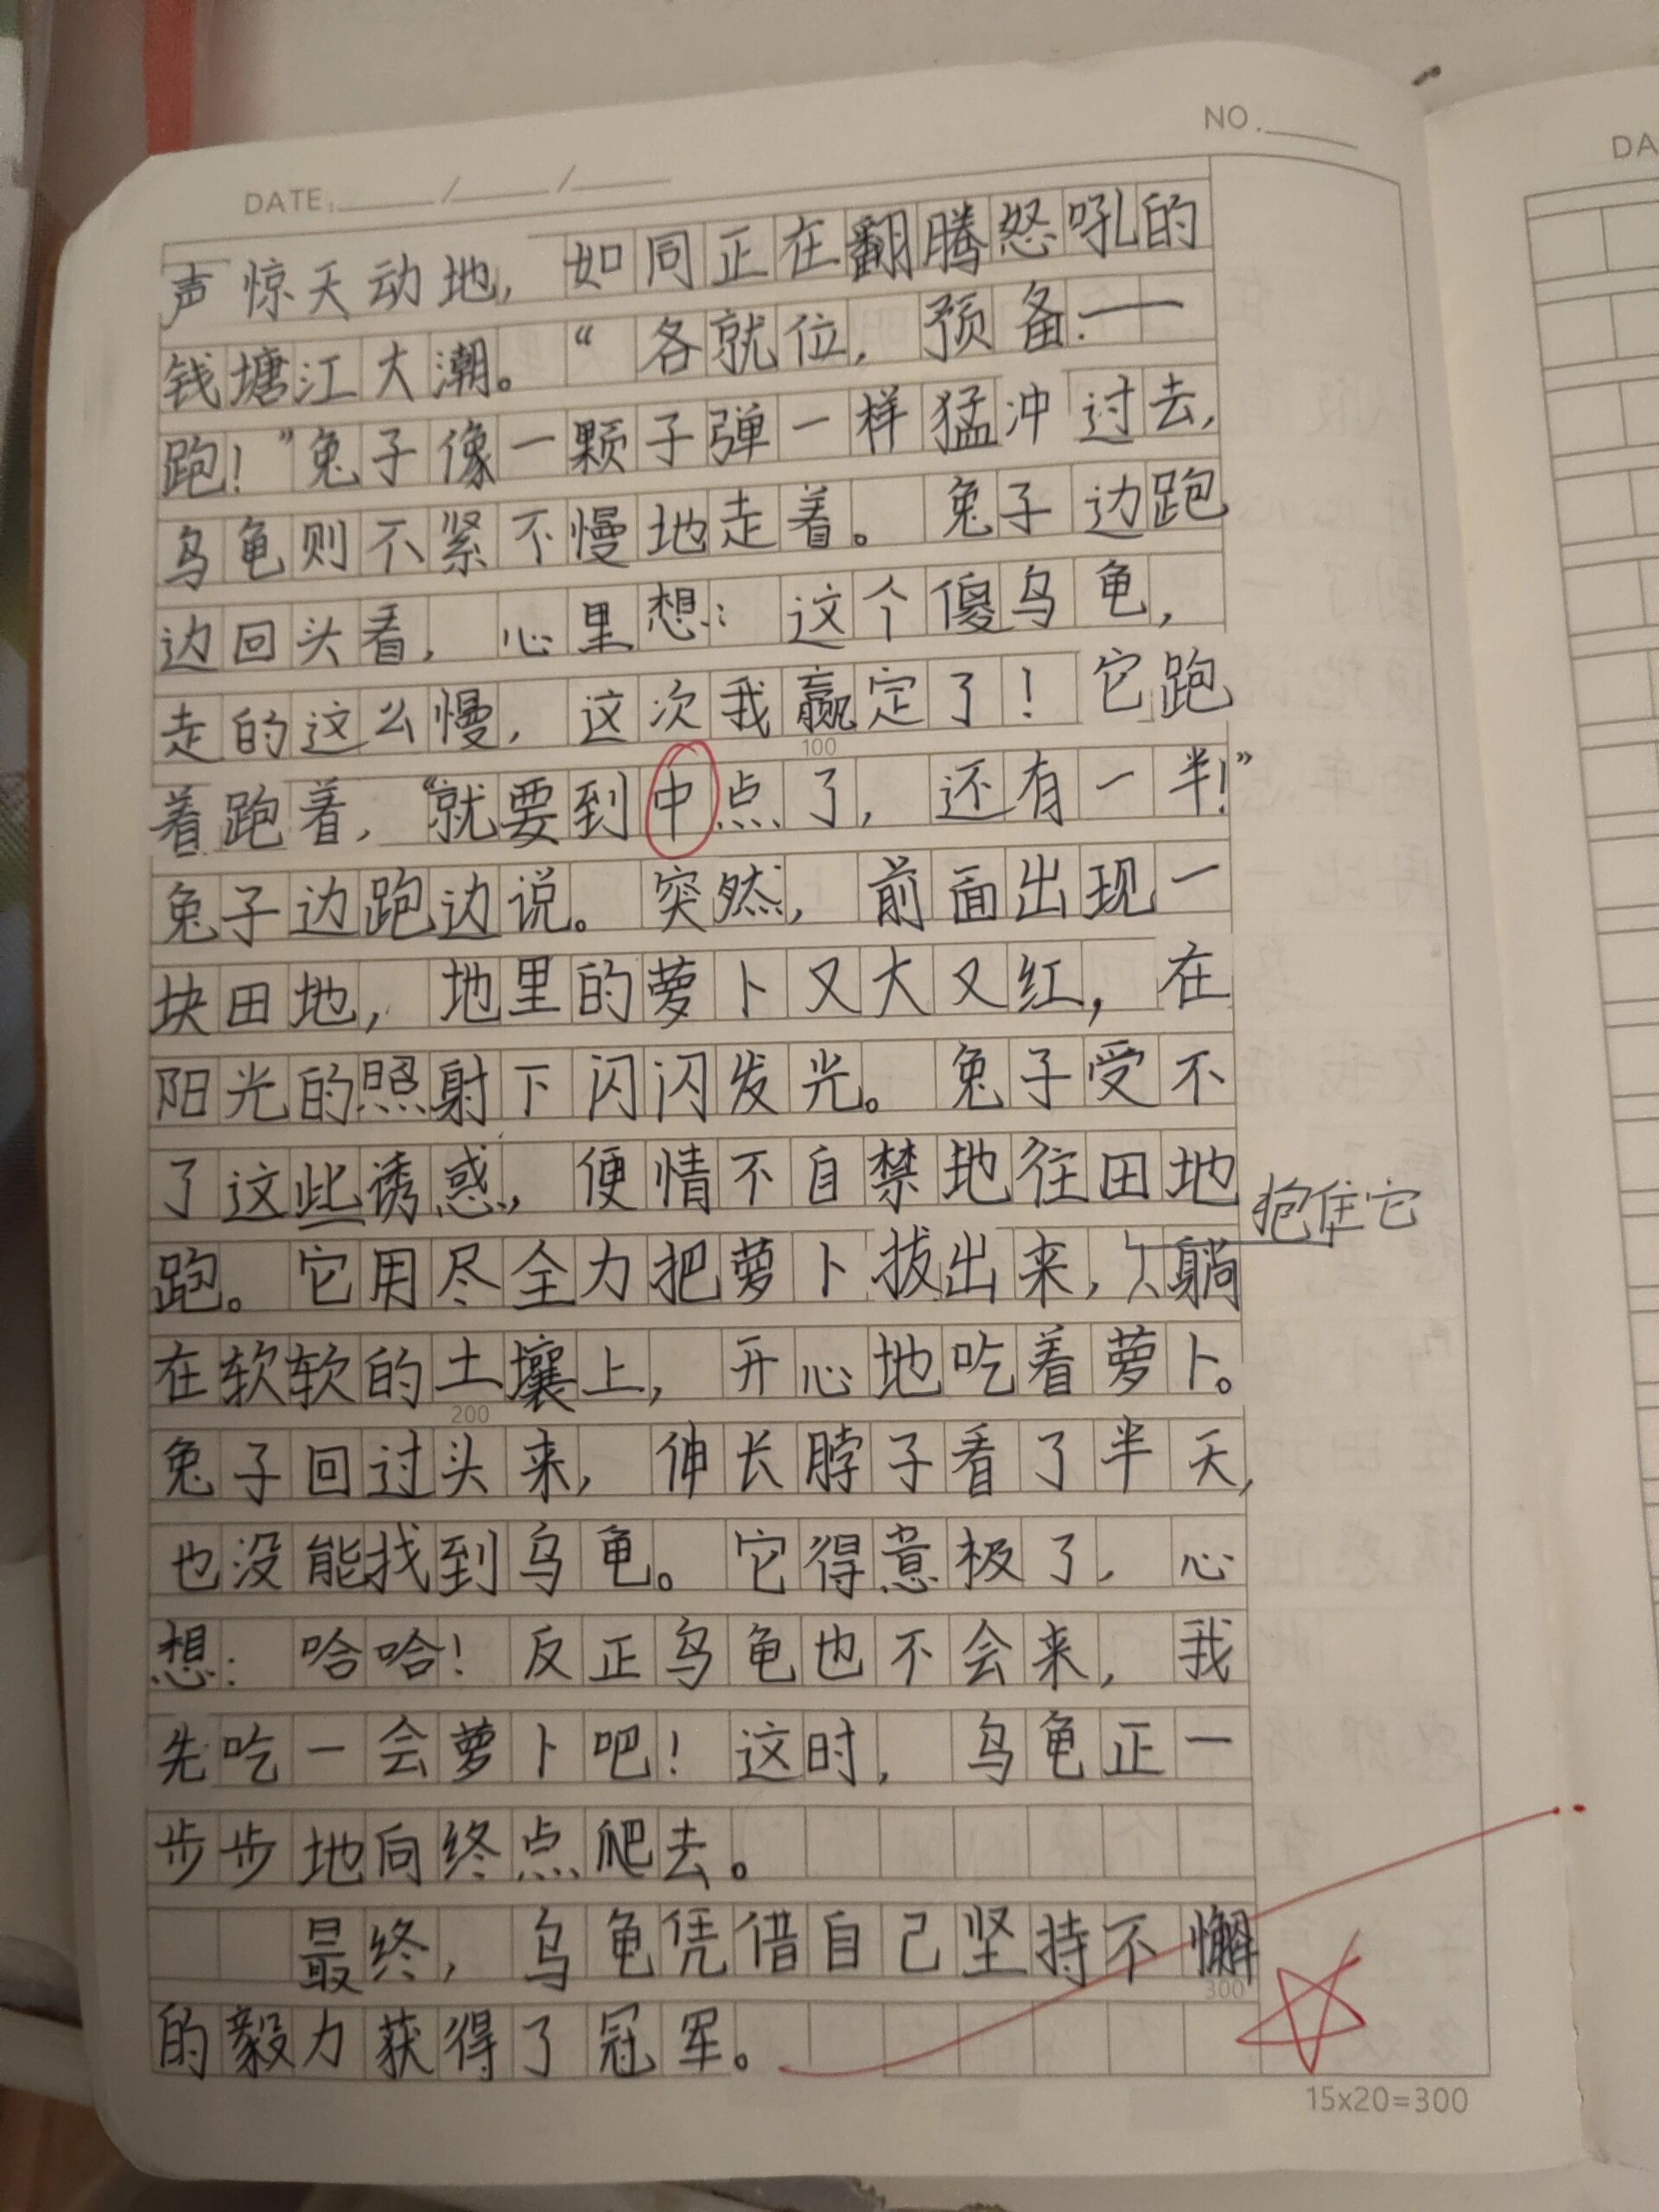 NO.
DATE. / /
DA
声惊天动地，如同正在翻腾怒吼的
钱塘江大潮。“各就位，预备：——
跑！”兔子像一颗子弹一样猛冲过去，
乌龟则不紧不慢地走着。兔子边跑
边回头看，心里想：这个傻乌龟，
走的这么慢，这次我赢定了！它跑
100
着跑着，“就要到中点了，还有一半！”
兔子边跑边说。突然，前面出现一
块田地，地里的萝卜又大又红，在
阳光的照射下闪闪发光。兔子受不
了这些诱惑，便情不自禁地往田地
抱住它
跑。它用尽全力把萝卜拔出来，躺
在软软的土壤上，开心地吃着萝卜。
200
兔子回过头来，伸长脖子看了半天，
也没能找到乌龟。它得意极了，心
想：哈哈！反正乌龟也不会来，我
先吃一会萝卜吧！这时，乌龟正一
步步地向终点爬去。
最终，乌龟凭借自己坚持不懈
300
的毅力获得了冠军。
15x20=300